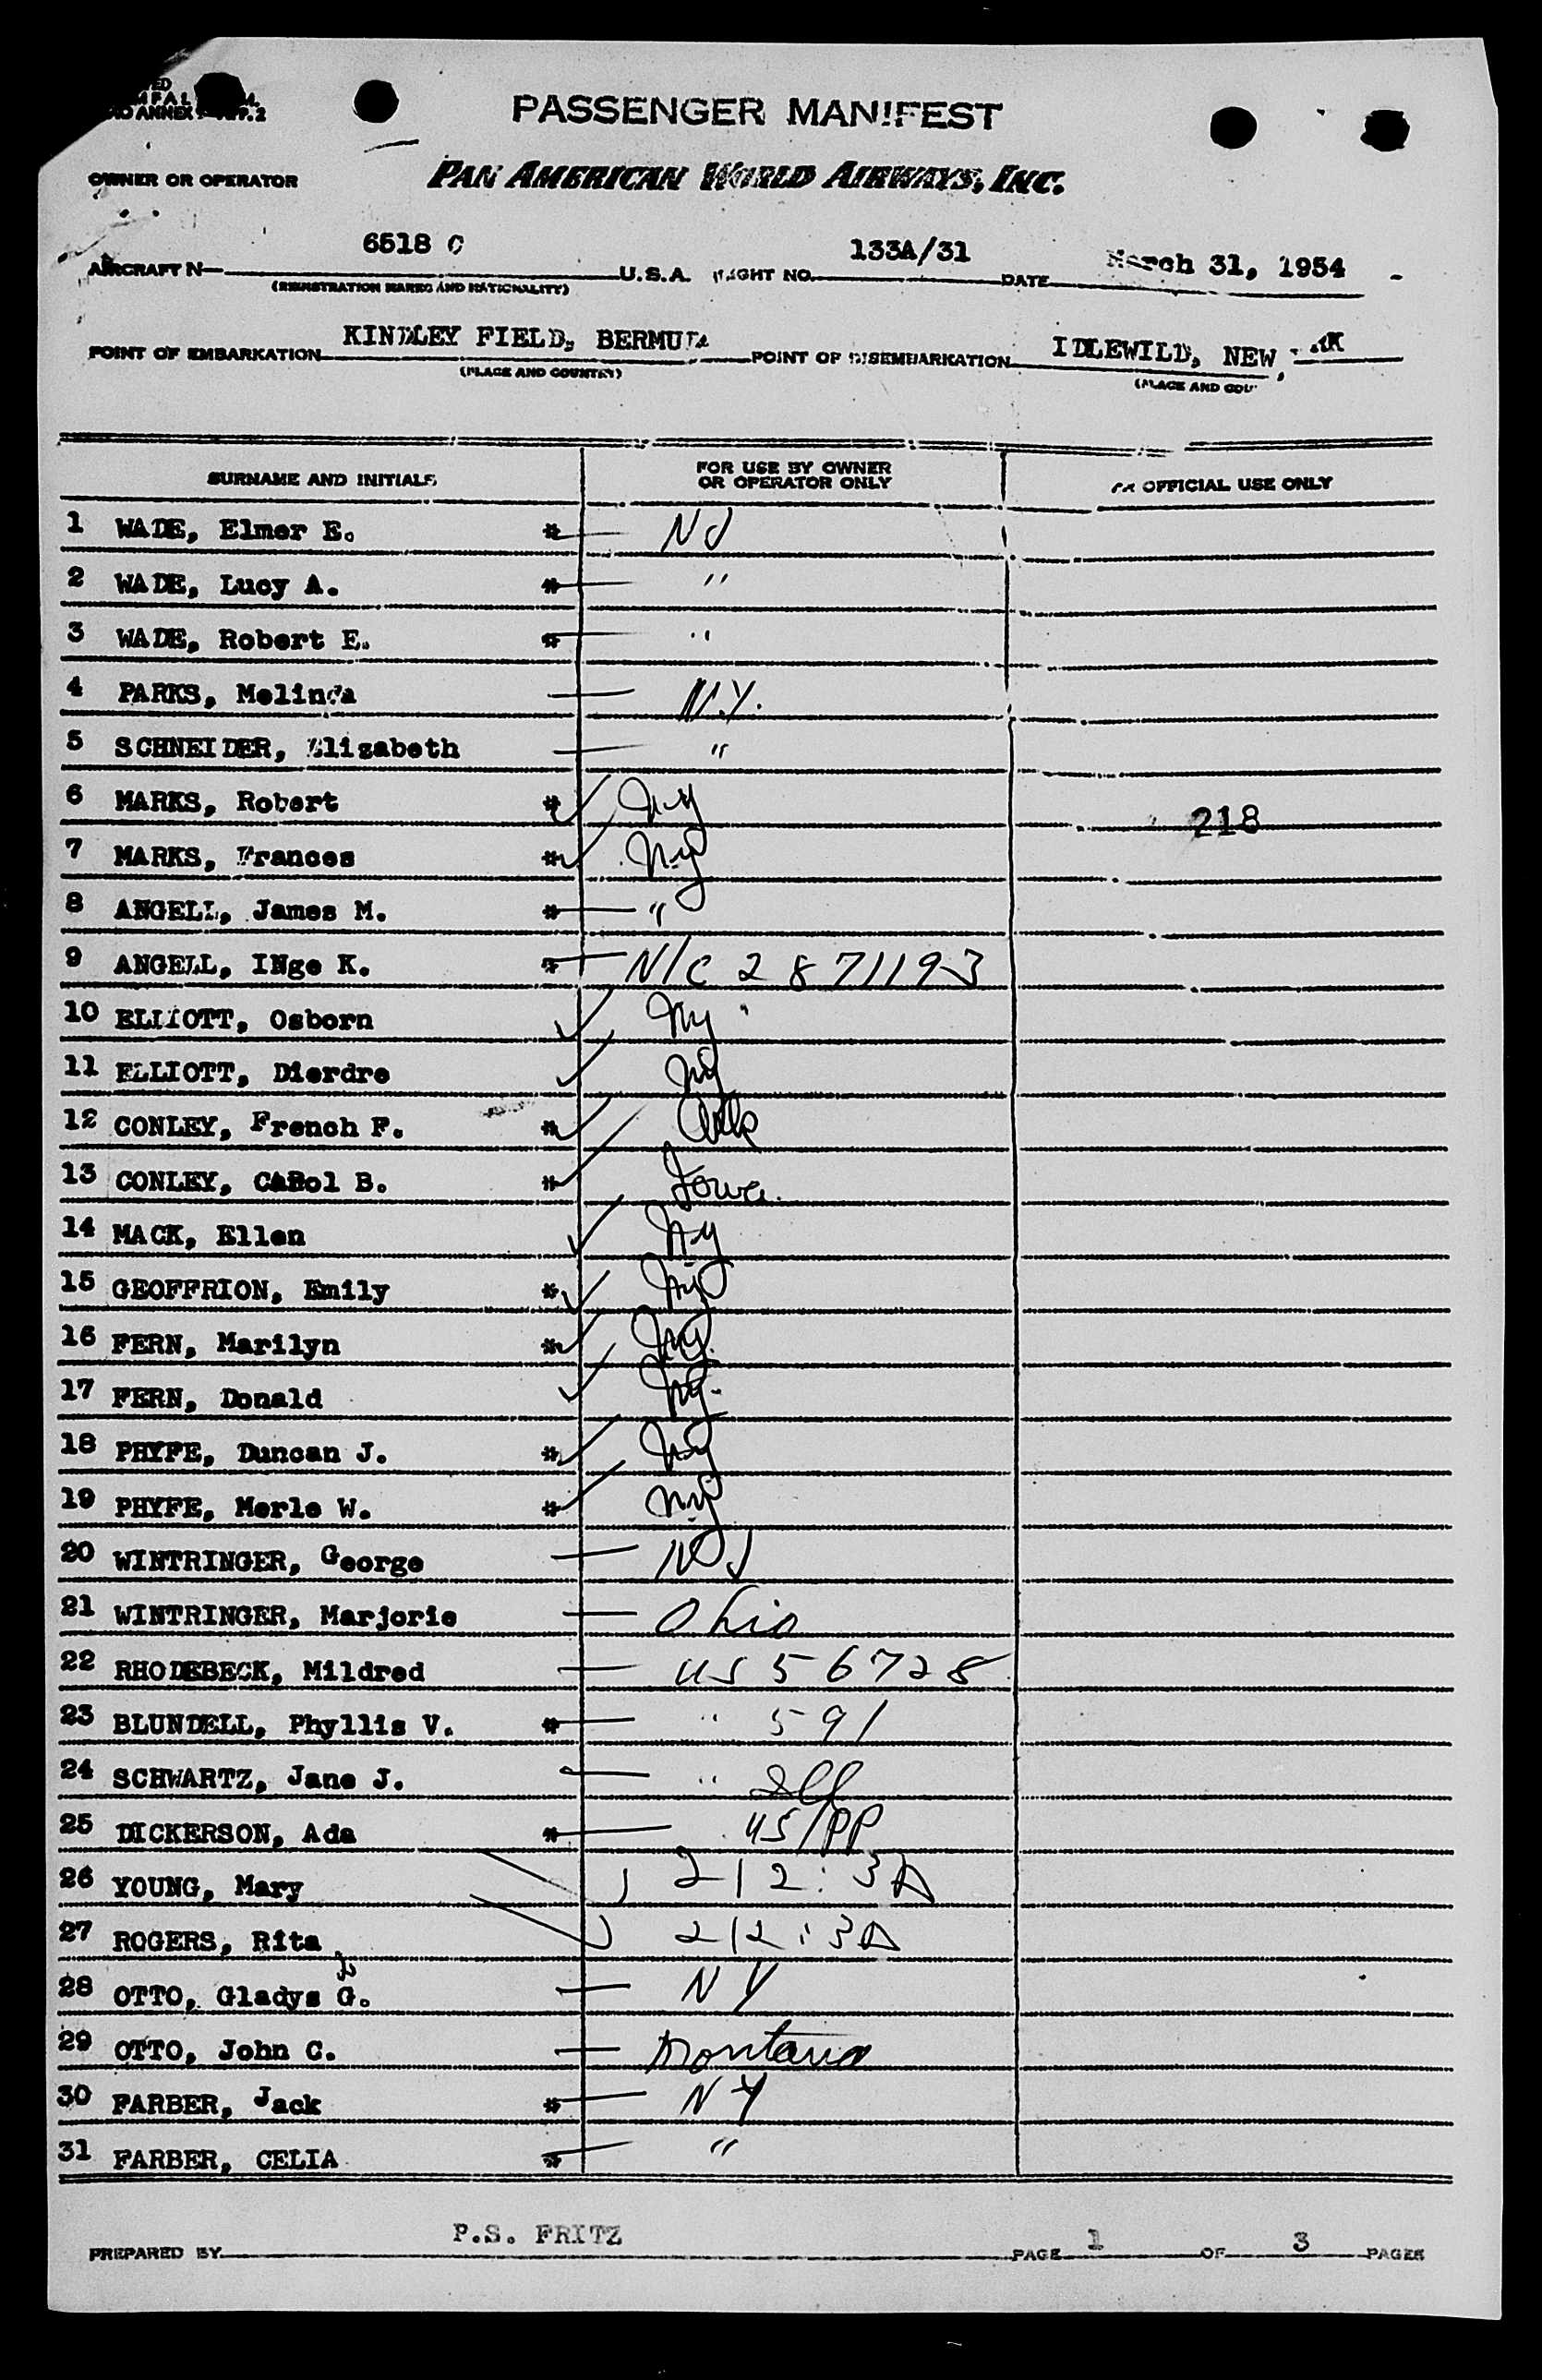 ANNEX
PASSENGER MANIFEST
OWNER OR OPERATOR PAN AMERICAN WORLD AIRWAYS, INC.
AIRCRAFT N 6518 C U.S.A. FLIGHT NO. 133A/31 DATE March 31, 1954
(REGISTRATION MARKS AND NATIONALITY)
POINT OF EMBARKATION KINDLEY FIELD, BERMUDA POINT OF DISEMBARKATION IDLEWILD, NEW
(PLACE AND COUNTRY) (PLACE AND COU
SURNAME AND INITIALS FOR USE BY OWNER OR OPERATOR ONLY OFFICIAL USE ONLY
1 WADE, Elmer E. * NJ
2 WADE, Lucy A. * "
3 WADE, Robert E. * "
4 PARKS, Melinda N.Y.
5 SCHNEIDER, Elizabeth "
6 MARKS, Robert * NY 218
7 MARKS, Frances * NY
8 ANGELL, James M. * "
9 ANGELL, INge K. * N/C 2871193
10 ELLIOTT, Osborn NY
11 ELLIOTT, Dierdre NY
12 CONLEY, French F. * Ark
13 CONLEY, CaRol B. * Iowa
14 MACK, Ellen NY
15 GEOFFRION, Emily * NY
16 FERN, Marilyn * NY
17 FERN, Donald NY
18 PHYFE, Duncan J. * NY
19 PHYFE, Merle W. * NY
20 WINTRINGER, George NJ
21 WINTRINGER, Marjorie Ohio
22 RHODEBECK, Mildred US 56728
23 BLUNDELL, Phyllis V. * " 591
24 SCHWARTZ, Jane J. "
25 DICKERSON, Ada * US/PP
26 YOUNG, Mary 212:3A
27 ROGERS, Rita 212:3A
28 OTTO, Gladys G. NY
29 OTTO, John C. Montana
30 FARBER, Jack * NY
31 FARBER, CELIA * "
PREPARED BY P.S. FRITZ PAGE 1 OF 3 PAGES